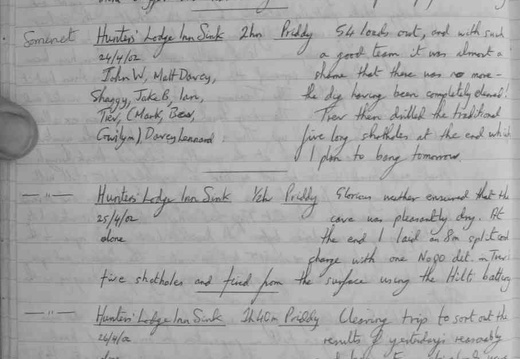 Somerset Hunters' Lodge Inn Sink 2hr Priddy 54 loads out, and with such
24/4/02 a good team it was almost a
John W, Matt Davey, shame that there was no more -
Shaggy, Jake B, Ian, the dig having been completely cleared!
Trev, (Mark, Bean, Trev then drilled the traditional
Gwilym) Davey Lennard. five long shotholes at the end which
I plan to bang tomorrow.
— " — Hunters' Lodge Inn Sink 1/2hr Priddy Glorious weather ensured that the
25/4/02 cave was pleasantly dry. At
alone the end I laid an 8m
charge with one No80 det. in Trev's
five shotholes and fired from the surface using the Hilti battery
— " — Hunters' Lodge Inn Sink 2h40m Priddy Clearing trip to sort out the
26/4/02 results of yesterday's reasonably